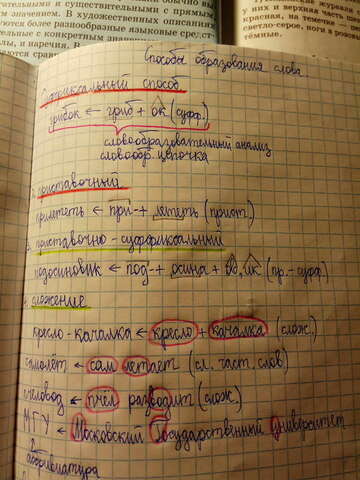 ительными и существительными с прямым
м значением. В художественных описани
уются более разнообразные языковые средст
и наречия. В
аются сравн
у них и верхняя часть ш
красная, на темени – пе
светло-серое, ноги и розов
тёмные.
Способы образования слова
суффиксальный способ
грибок ← гриб + ок (суфф.)
словообразовательный анализ
словообр. цепочка
приставочный
прилететь ← при- + лететь (прист.)
приставочно-суффиксальный
подосиновик ← под- + осина + ов, ик (пр.-суфф.)
сложение
кресло-качалка ← кресло + качалка (слож.)
самолёт ← сам летает (сл. част. слов)
пчеловод ← пчёл разводит (слож.)
МГУ ← Московский Государственный Университет
аббривиатура